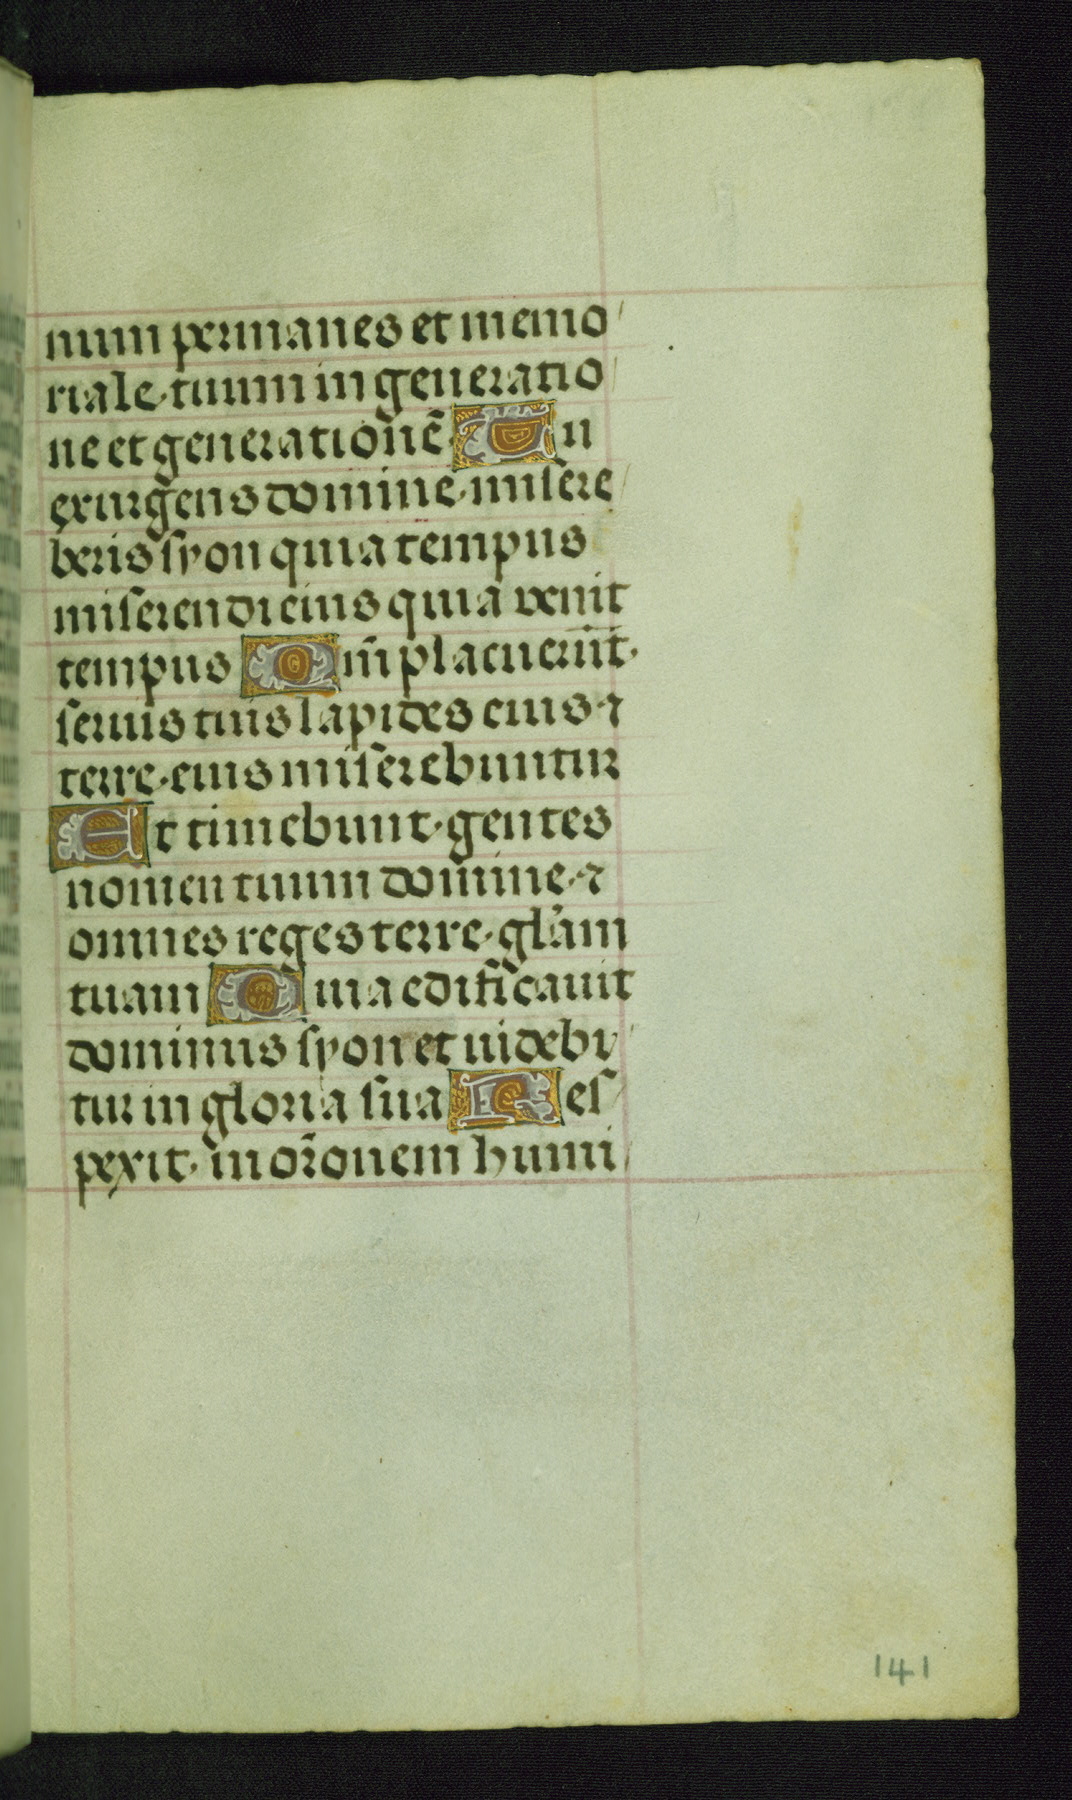 num permanes et memo
riale tuum in generatio
ne et generationē Tu
exurgens domine misere
beris syon quia tempus
miserendi eius quia venit
tempus Qm̄ placuerūt
seruis tuis lapides eius ⁊
terre eius miserebuntur
Et timebunt gentes
nomen tuum domine ⁊
omnes reges terre gl̄am
tuam Quia edificauit
dominus syon et uidebi
tur in gloria sua Res
pexit in or̄onem humi
141